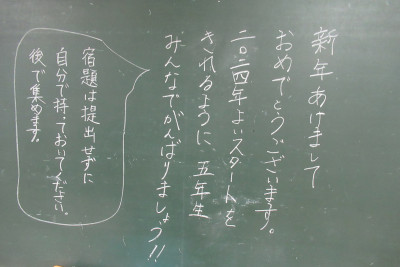 新年、あけまして
おめでとうございます。
二〇二四年よいスタートを
きれるように、五年生
みんなでがんばりましょう!!
宿題は提出せずに
自分で持っておいてください。
後で集めます。